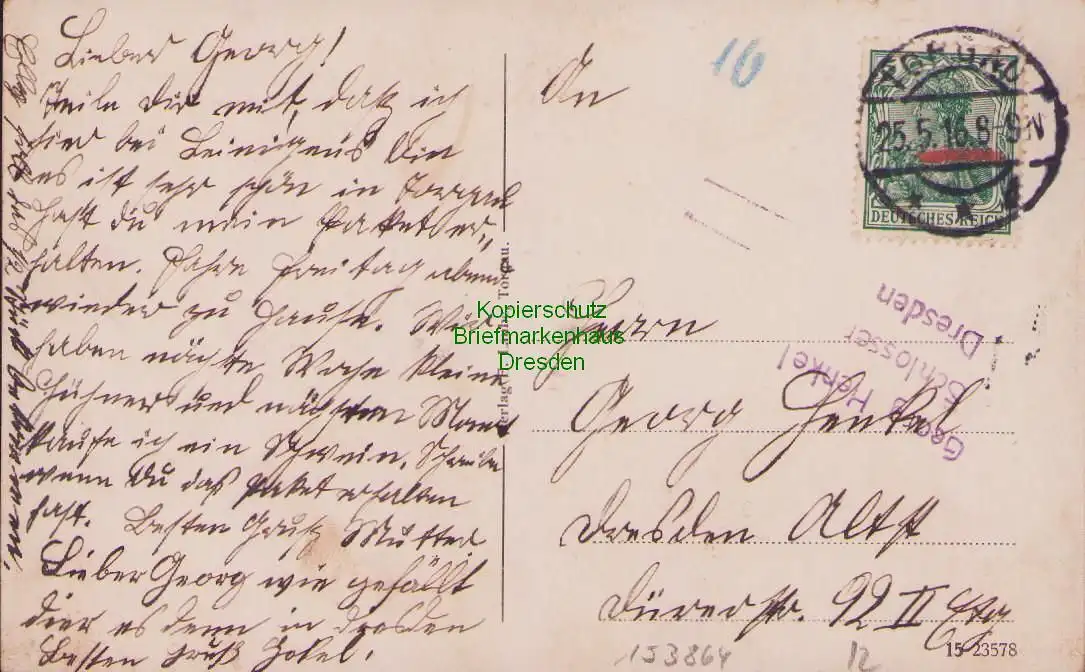 Lieber Georg!
Teile Dir mit, daß ich
hier bei Leinigens bin
es ist sehr schön in Torgau
hast du mein Paket er-
halten. Fahre Freitag abend
wieder zu Hause. Wir
haben nächste Woche kleine
Hühner und nächsten Monat
kaufe ich ein Schwein. Schreibe
wenn Du das Paket erhalten
hast. Besten Gruß Mutter
Lieber Georg wie gefällt
dier es denn in Dresden
Besten Gruß
An
16
TORGAU
25.5.16.8-9N
DEUTSCHES REICH
Torgau.
Kopierschutz
Briefmarkenhaus
Dresden
Georg Henkel
Schlosser
Dresden
Herrn
Georg Henkel
Dresden Altst
Dürerstr. 92 II Etg
15 23578
153864
12